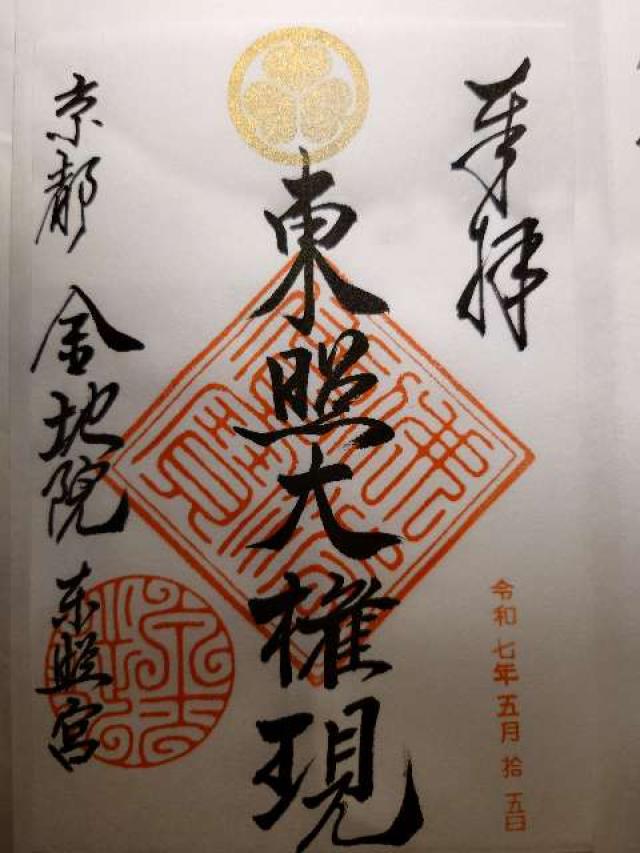 奉拝
令和七年五月拾五日
東照大権現
京都 金地院 東照宮